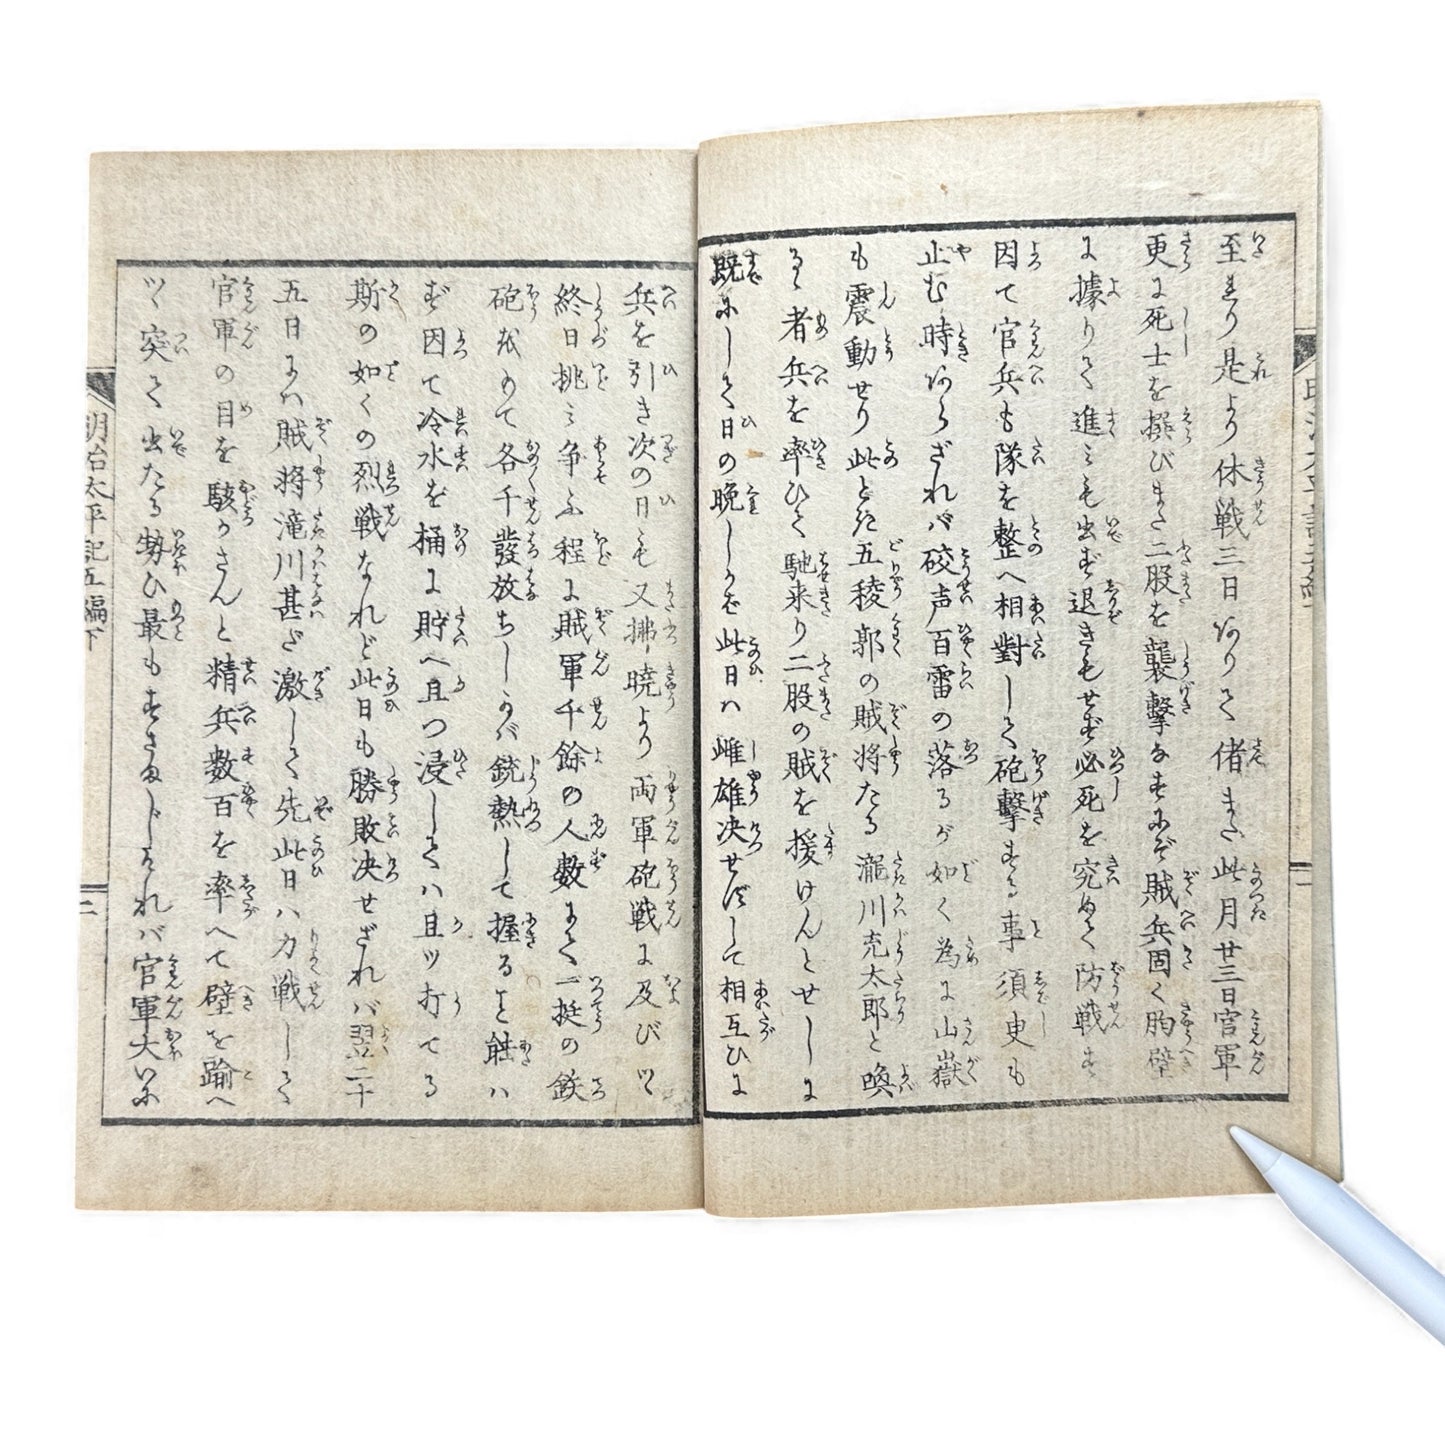 至れり是より休戦三日ありて偖また此月廿三日官軍
更に死士を撰びまた二股を襲撃なすにぞ賊兵固く胸壁
に據りて進みも出ず退きもせず必死を究めて防戦す
因て官兵も隊を整へ相對して砲撃する事須臾も
止む時あらざれバ砲声百雷の落るが如く為に山嶽
も震動せり此とき五稜郭の賊将たる瀧川充太郎と喚
るゝ者兵を率ひて馳来り二股の賊を援けんとせしに
既にして日の晩しかど此日ハ雌雄决せずして相互ひに
兵を引き次の日も又拂暁より両軍砲戦に及びツヽ
終日挑み争ふ程に賊軍千餘の人数にて一挺の鉄
砲をもて各千發放ちしかバ銃熱して握ると能ハ
ず因て冷水を桶に貯へ且つ浸してハ且ツ打てる
斯の如くの烈戦なれど此日も勝敗决せざれバ翌二十
五日にハ賊将滝川甚だ激して先此日ハ力戦して
官軍の目を駭かさんと精兵数百を率へて壁を踰へ
ツヽ突て出たる勢ひ最もすさまじければ官軍大いに
明治太平記五編下
二